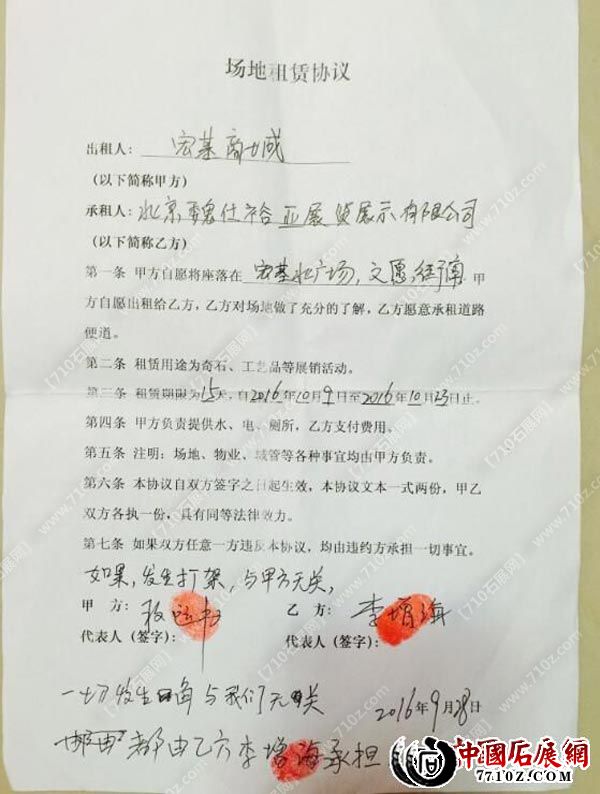 场地租赁协议
出租人：宏基商城
(以下简称甲方)
承租人：北京魏仕裕亚展览展示有限公司
(以下简称乙方)
第一条 甲方自愿将座落在 宏基北广场，文愿街南 甲
方自愿出租给乙方，乙方对场地做了充分的了解，乙方愿意承租道路
便道。
第二条 租赁用途为奇石、工艺品等展销活动。
第三条 租赁期限为15天，自2016年10月9日至2016年10月23日止。
第四条 甲方负责提供水、电、厕所，乙方支付费用。
第五条 注明：场地、物业、城管等各种事宜均由甲方负责。
第六条 本协议自双方签字之日起生效，本协议文本一式两份，甲乙
双方各执一份，具有同等法律效力。
第七条 如果双方任意一方违反本协议，均由违约方承担一切事宜。
如果，发生打架，与甲方无关，
甲 方： 乙 方：李增海
代表人（签字）： 代表人（签字）：
一切发生 与我们无关
2016年9月28日
都由乙方李增海承担
中國石展網
7710z.com
[710石展网] www.710z.com